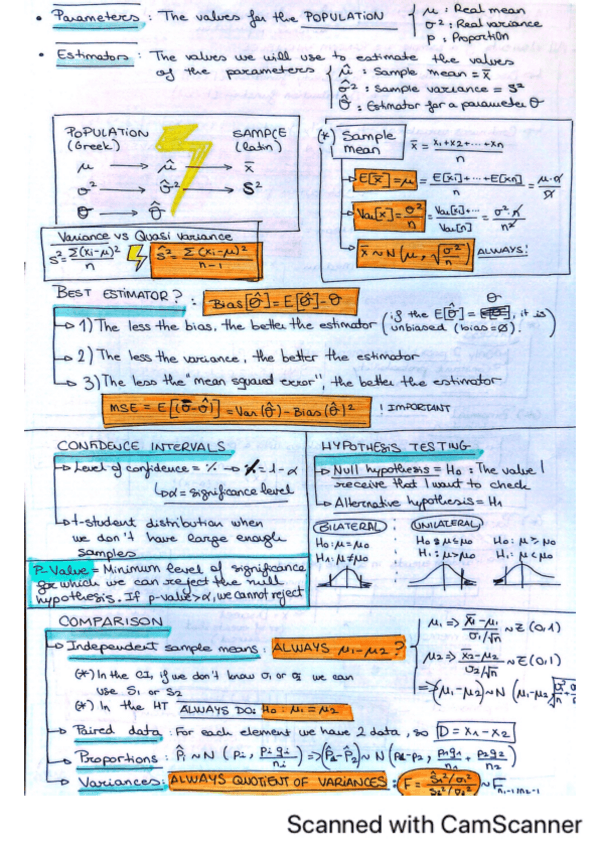 • Parameters : The values for the POPULATION { μ : Real mean
σ² : Real variance
p : Proportion
• Estimators : The values we will use to estimate the values
of the parameters { μ̂ : Sample mean = x̄
σ̂² : Sample variance = S²
θ̂ : Estimator for a parameter θ
POPULATION (Greek) SAMPLE (Latin)
μ → μ̂ → x̄
σ² → σ̂² → S²
θ → θ̂
(*) Sample mean x̄ = x1+x2+...+xn / n
E[x̄]=μ = E[x1]+...+E[xn] / n = μ·n / n
Var[x̄]=σ²/n = Var[x1]+... / Var[n] = σ²·n / n²
x̄ ~ N(μ, √σ²/n) ALWAYS!
Variance vs Quasi variance
S² = Σ(xi-μ)² / n Ŝ² = Σ(xi-μ)² / n-1
BEST ESTIMATOR? : Bias[θ̂] = E[θ̂] - θ
→ 1) The less the bias, the better the estimator (if the E[θ̂] = θ, it is unbiased (bias=Ø).
→ 2) The less the variance, the better the estimator
→ 3) The less the "mean squared error", the better the estimator
MSE = E[(θ-θ̂)] = Var(θ̂) - Bias(θ̂)² ! IMPORTANT
CONFIDENCE INTERVALS
→ Level of confidence = % → % = 1-α
→ α = significance level
→ t-student distribution when
we don't have large enough
samples
P-Value = Minimum level of significance
for which we can reject the null
hypothesis. If p-value>α, we cannot reject
HYPOTHESIS TESTING
→ Null hypothesis = H0 : The value I
receive that I want to check
→ Alternative hypothesis = H1
BILATERAL : UNILATERAL
H0: μ = μ0 H0: μ ≤ μ0 H0: μ ≥ μ0
H1: μ ≠ μ0 H1: μ > μ0 H1: μ < μ0
COMPARISON
→ Independent sample means : ALWAYS μ1-μ2 ?
(*) In the CI, if we don't know σ1 or σ2 we can
use S1 or S2
(*) In the HT ALWAYS DO: H0 : μ1 = μ2
μ1 => x̄1-μ1 / σ1/√n ~ Z(0,1)
μ2 => x̄2-μ2 / σ2/√n ~ Z(0,1)
=> (μ1-μ2) ~ N (μ1-μ2
→ Paired data : For each element we have 2 data, so D = x1-x2
→ Proportions : P̂i ~ N (pi, pi qi / ni) => (P̂1-P̂2) ~ N (p1-p2, p1q1 / n1 + p2q2 / n2)
→ Variances: ALWAYS QUOTIENT OF VARIANCES : F = Ŝ1²/σ1² / Ŝ2²/σ2² ~ F n1-1, n2-1
Scanned with CamScanner